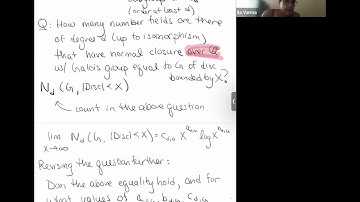 (order at least d)
Q: How many number fields are there
of degree d (up to isomorphism)
that have normal closure over Q
w/ Galois group equal to G of disc
bounded by X?
N_d (G, |Disc| < X)
count in the above question.
lim N_d (G, |Disc| < X) = c_{d,G} X^{a_{d,G}} log X^{b_{d,G}}
X→∞
Revising the question further:
Does the above equality hold, and for
what values of
Ila Varma